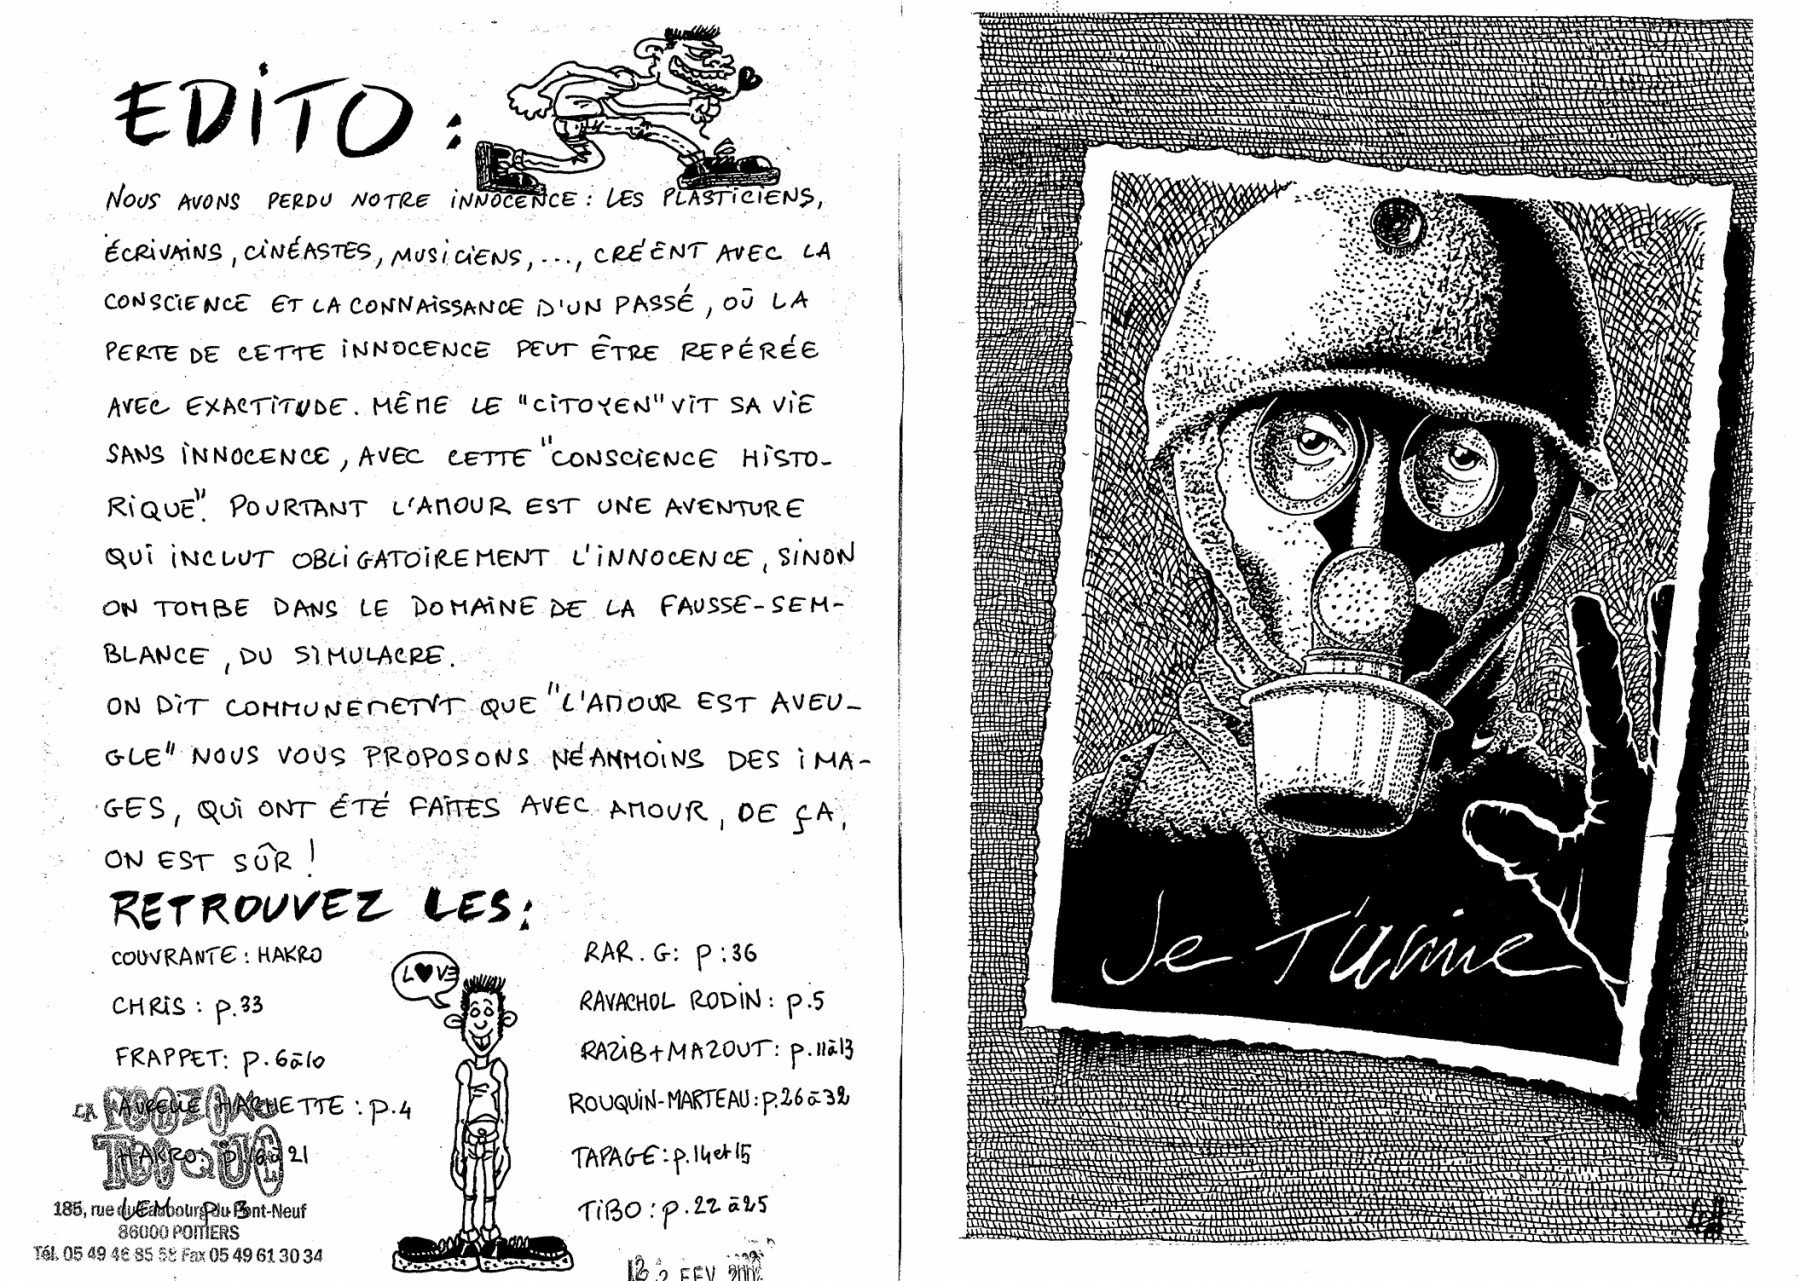 EDITO :
NOUS AVONS PERDU NOTRE INNOCENCE : LES PLASTICIENS,
ÉCRIVAINS, CINÉASTES, MUSICIENS, ..., CRÉENT AVEC LA
CONSCIENCE ET LA CONNAISSANCE D'UN PASSÉ, OÙ LA
PERTE DE CETTE INNOCENCE PEUT ÊTRE REPÉRÉE
AVEC EXACTITUDE. MÊME LE "CITOYEN" VIT SA VIE
SANS INNOCENCE, AVEC CETTE "CONSCIENCE HISTO-
RIQUE". POURTANT L'AMOUR EST UNE AVENTURE
QUI INCLUT OBLIGATOIREMENT L'INNOCENCE, SINON
ON TOMBE DANS LE DOMAINE DE LA FAUSSE-SEM-
BLANCE, DU SIMULACRE.
ON DIT COMMUNEMENT QUE "L'AMOUR EST AVEU-
GLE" NOUS VOUS PROPOSONS NÉANMOINS DES IMA-
GES, QUI ONT ÉTÉ FAITES AVEC AMOUR, DE ÇA,
ON EST SÛR !
RETROUVEZ LES :
COUVRANTE : HAKRO
CHRIS : p.33
FRAPPET : p.6à10
AURELIE HACHETTE : p.4
HAKRO : 21
LEM p3
LA
185, rue du Faubourg du Pont-Neuf
86000 POITIERS
Tél. 05 49 46 85 58 Fax 05 49 61 30 34
LOVE
RAR. G : p : 36
RAVACHOL RODIN : p.5
RAZIB+MAZOUT : p.11à13
ROUQUIN-MARTEAU : p.26à32
TAPAGE : p.14et15
TIBO : p.22à25
2 FEV.
Je T'aime